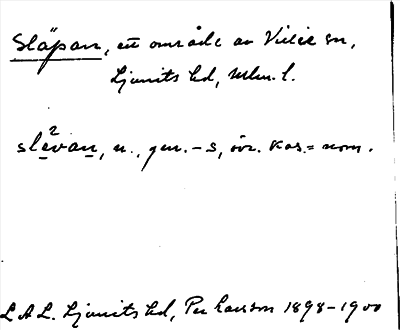 Släpan, ett område av Vistie sn,
Ljunits hd, Mlm. l.
slevan, n., gen. -s, övr. kas. = nom.
L A L. Ljunits hd, Per Larsson 1898-1900